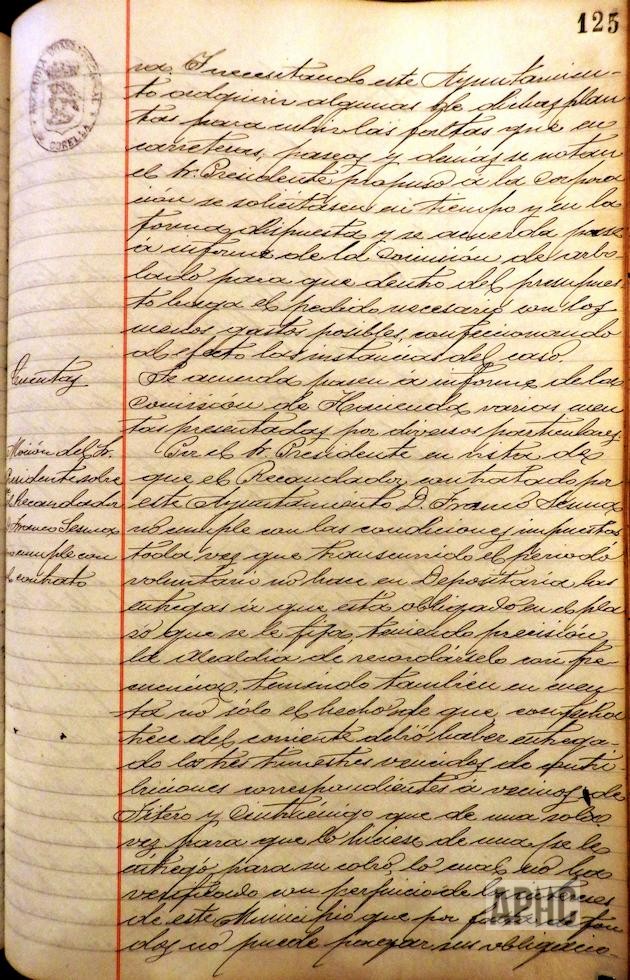 125
ALCALDIA CONSTITUCIONAL DE CORELLA
ra. Y necesitando este Ayuntamien-
to adquirir algunas de dichas plan
tas para cubrir las faltas que en
carreteras, paseos y demás se notan
el Sr. Presidente propuso á la Corpora
ción se solicitasen en tiempo y en la
forma dispuesta y se acuerda pase
á informe de la Comisión de arbo-
lado para que dentro del presupues
to haga el pedido necesario con los
menos gastos posibles, confeccionando
al efecto las instancias del caso.
Cuentas
Se acuerda pasen á informe de la
Comisión de Hacienda varias cuen
tas presentadas por diversos particulares.
Moción del Sr.
Presidente sobre
el Recaudador
Franco Sesma
no cumple con
el contrato
Por el Sr. Presidente en vista de
que el Recaudador contratado por
este Ayuntamiento D. Franco Sesma
no cumple con las condiciones impuestas
toda vez que transcurrido el periodo
voluntario no hace en Depositaría las
entregas á que está obligado en el pla
zo que se le fija teniendo precisión
la Alcaldía de recordárselo con fre-
cuencia, teniendo también en cuen-
ta no sólo el hecho de que con fecha
trece del corriente debió haber entrega-
do los tres trimestres vencidos de contri
buciones correspondientes á vecinos de
Fitero y Cintruénigo que de una sola
vez para que lo hiciese de una se le
entregó para su cobro, lo cual no ha
verificado con perjuicio de los intereses
de este Municipio que por falta de fon
dos no puede pagar sus obligacio-
APHC